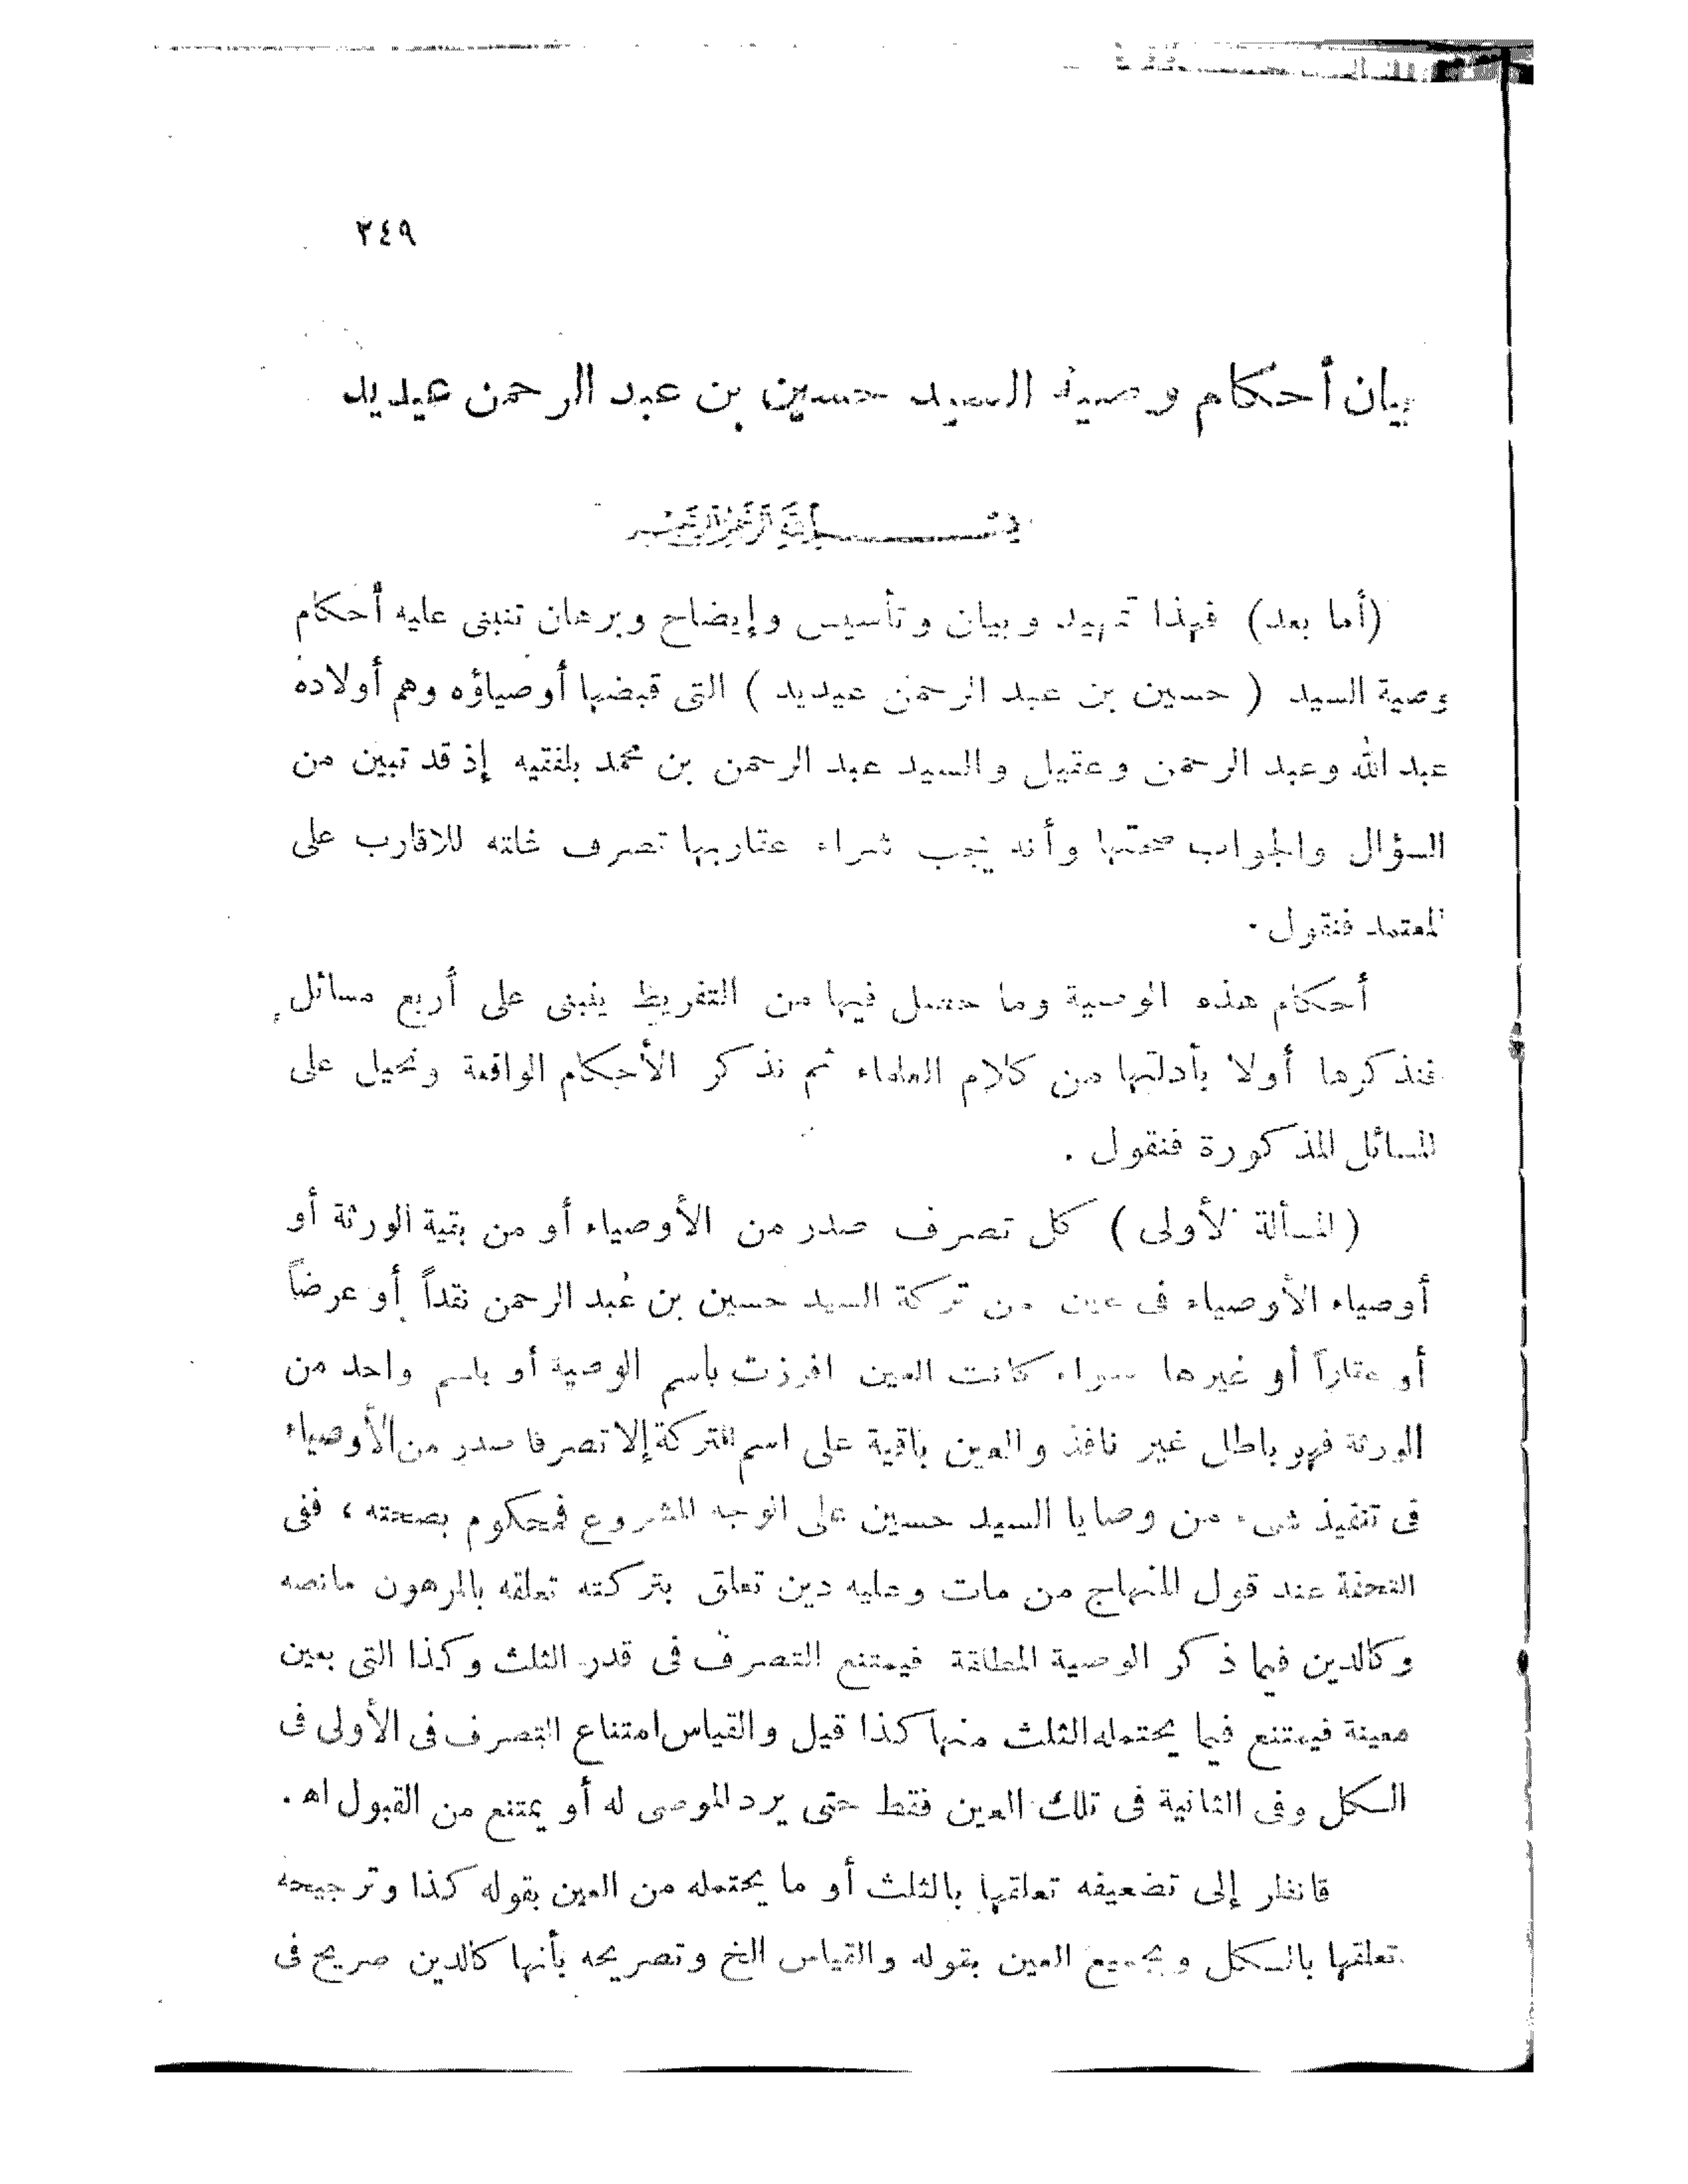 ٣٤٩
بيان أحكام وصية السيد حسين بن عبد الرحمن عيديد
بسم الله الرحمن الرحيم
(أما بعد) فهذا تمهيد وبيان وتأسيس وإيضاح وبرهان تنبنى عليه أحكام
وصية السيد ( حسين بن عبد الرحمن عيديد ) التى قبضها أوصياؤه وهم أولاده
عبد الله وعبد الرحمن وعقيل والسيد عبد الرحمن بن محمد بلفقيه إذ قد تبين من
السؤال والجواب صحتها وأنه يجب شراء عقار بها تصرف غلته للاقارب على
المعتمد فنقول .
أحكام هذه الوصية وما حصل فيها من التفريط ينبنى على أربع مسائل
فنذكرها أولا بأدلتها من كلام العلماء ثم نذكر الأحكام الواقعة ونحيل على
المسائل المذكورة فنقول .
( المسألة الأولى ) كل تصرف صدر من الأوصياء أو من بقية الورثة أو
أوصياء الأوصياء فى عين من تركة السيد حسين بن عبد الرحمن نقداً أو عرضاً
أو عقاراً أو غيرها سواء كانت العين افرزت باسم الوصية أو باسم واحد من
الورثة فهو باطل غير نافذ والعين باقية على اسم التركة إلا تصرفا صدر من الأوصياء
فى تنفيذ شىء من وصايا السيد حسين على الوجه المشروع فمحكوم بصحته ، ففى
التحفة عند قول المنهاج من مات وعليه دين تعلق بتركته تعلقه بالمرهون مانصه
وكالدين فيما ذكر الوصية المطلقة فيمتنع التصرف فى قدر الثلث وكذا التى بعين
معينة فيمتنع فيما يحتمله الثلث منها كذا قيل والقياس امتناع التصرف فى الأولى فى
الكل وفى الثانية فى تلك العين فقط حتى يرد الموصى له أو يمتنع من القبول اه .
فانظر إلى تضعيفه تعلقها بالثلث أو ما يحتمله من العين بقوله كذا وترجيحه
تعلقها بالكل وبجميع العين بقوله والقياس الخ وتصريحه بأنها كالدين صريح فى